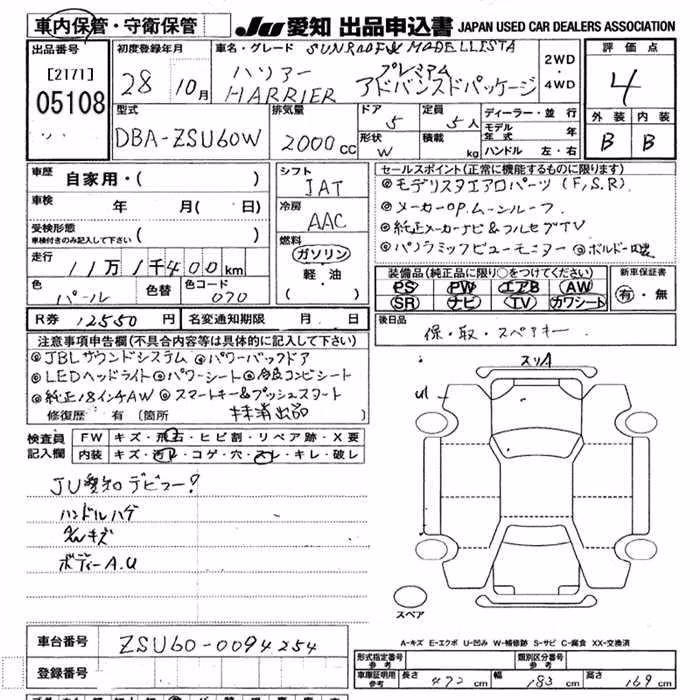 車内保管・守衛保管 JU 愛知 出品申込書 JAPAN USED CAR DEALERS ASSOCIATION
出品番号 初度登録年月 車名・グレード SUNROOF MODELLISTA 2WD 評価点
[2171] 28 10月 ハリアー プレミアム 4WD 4
05108 HARRIER アドバンスドパッケージ
型式 排気量 ドア 定員 ディーラー・並行 外装 内装
DBA-ZSU60W 2000cc 5 5人 モデル年式 年 B B
形状 W 積載 kg ハンドル 左・右
車歴 自家用・( ) シフト セールスポイント(正常に機能するものに限ります)
車検 年 月(日) JAT ◎モデリスタエアロパーツ(F,S,R)
受検形態 車検付きのみ記入して下さい ( ) 冷房 AAC ◎メーカーOP.ムーンルーフ
走行 11万1千400km 燃料 ◎純正メーカーナビ&フルセグTV
ガソリン ◎パノラミックビューモニター
色 パール 色替 色コード 070 軽・油 装備品(純正品に限り○をつけてください) 新車保証書
( ) PS PW エアB AW 有・無
SR ナビ TV カワシート
R券 12550円 名変通知期限 月 日 後日品
注意事項申告欄(不具合内容等は具体的に記入して下さい) 保・取・スペアキー
◎JBLサウンドシステム ◎パワーバックドア スリA
◎LEDヘッドライト ◎パワーシート ◎合皮コンビシート U1
◎純正18インチAW ◎スマートキー&プッシュスタート
修復歴 有 [箇所
検査員 FW キズ・飛石・ヒビ割・リペア跡・X要
記入欄 内装 キズ・汚れ・コゲ・穴・スレ・キレ・破レ
JU愛知デビュー!
ハンドルハゲ
キズ
ボディーA.U
スペア
A-キズ E-エクボ U-凹み W-補修跡 S-サビ C-腐食 XX-交換済
車台番号 ZSU60-0094254
形式指定番号 参考 類別区分番号 参考
登録番号 車庫証明用 参考 長さ 472cm 幅 183cm 高さ 169cm